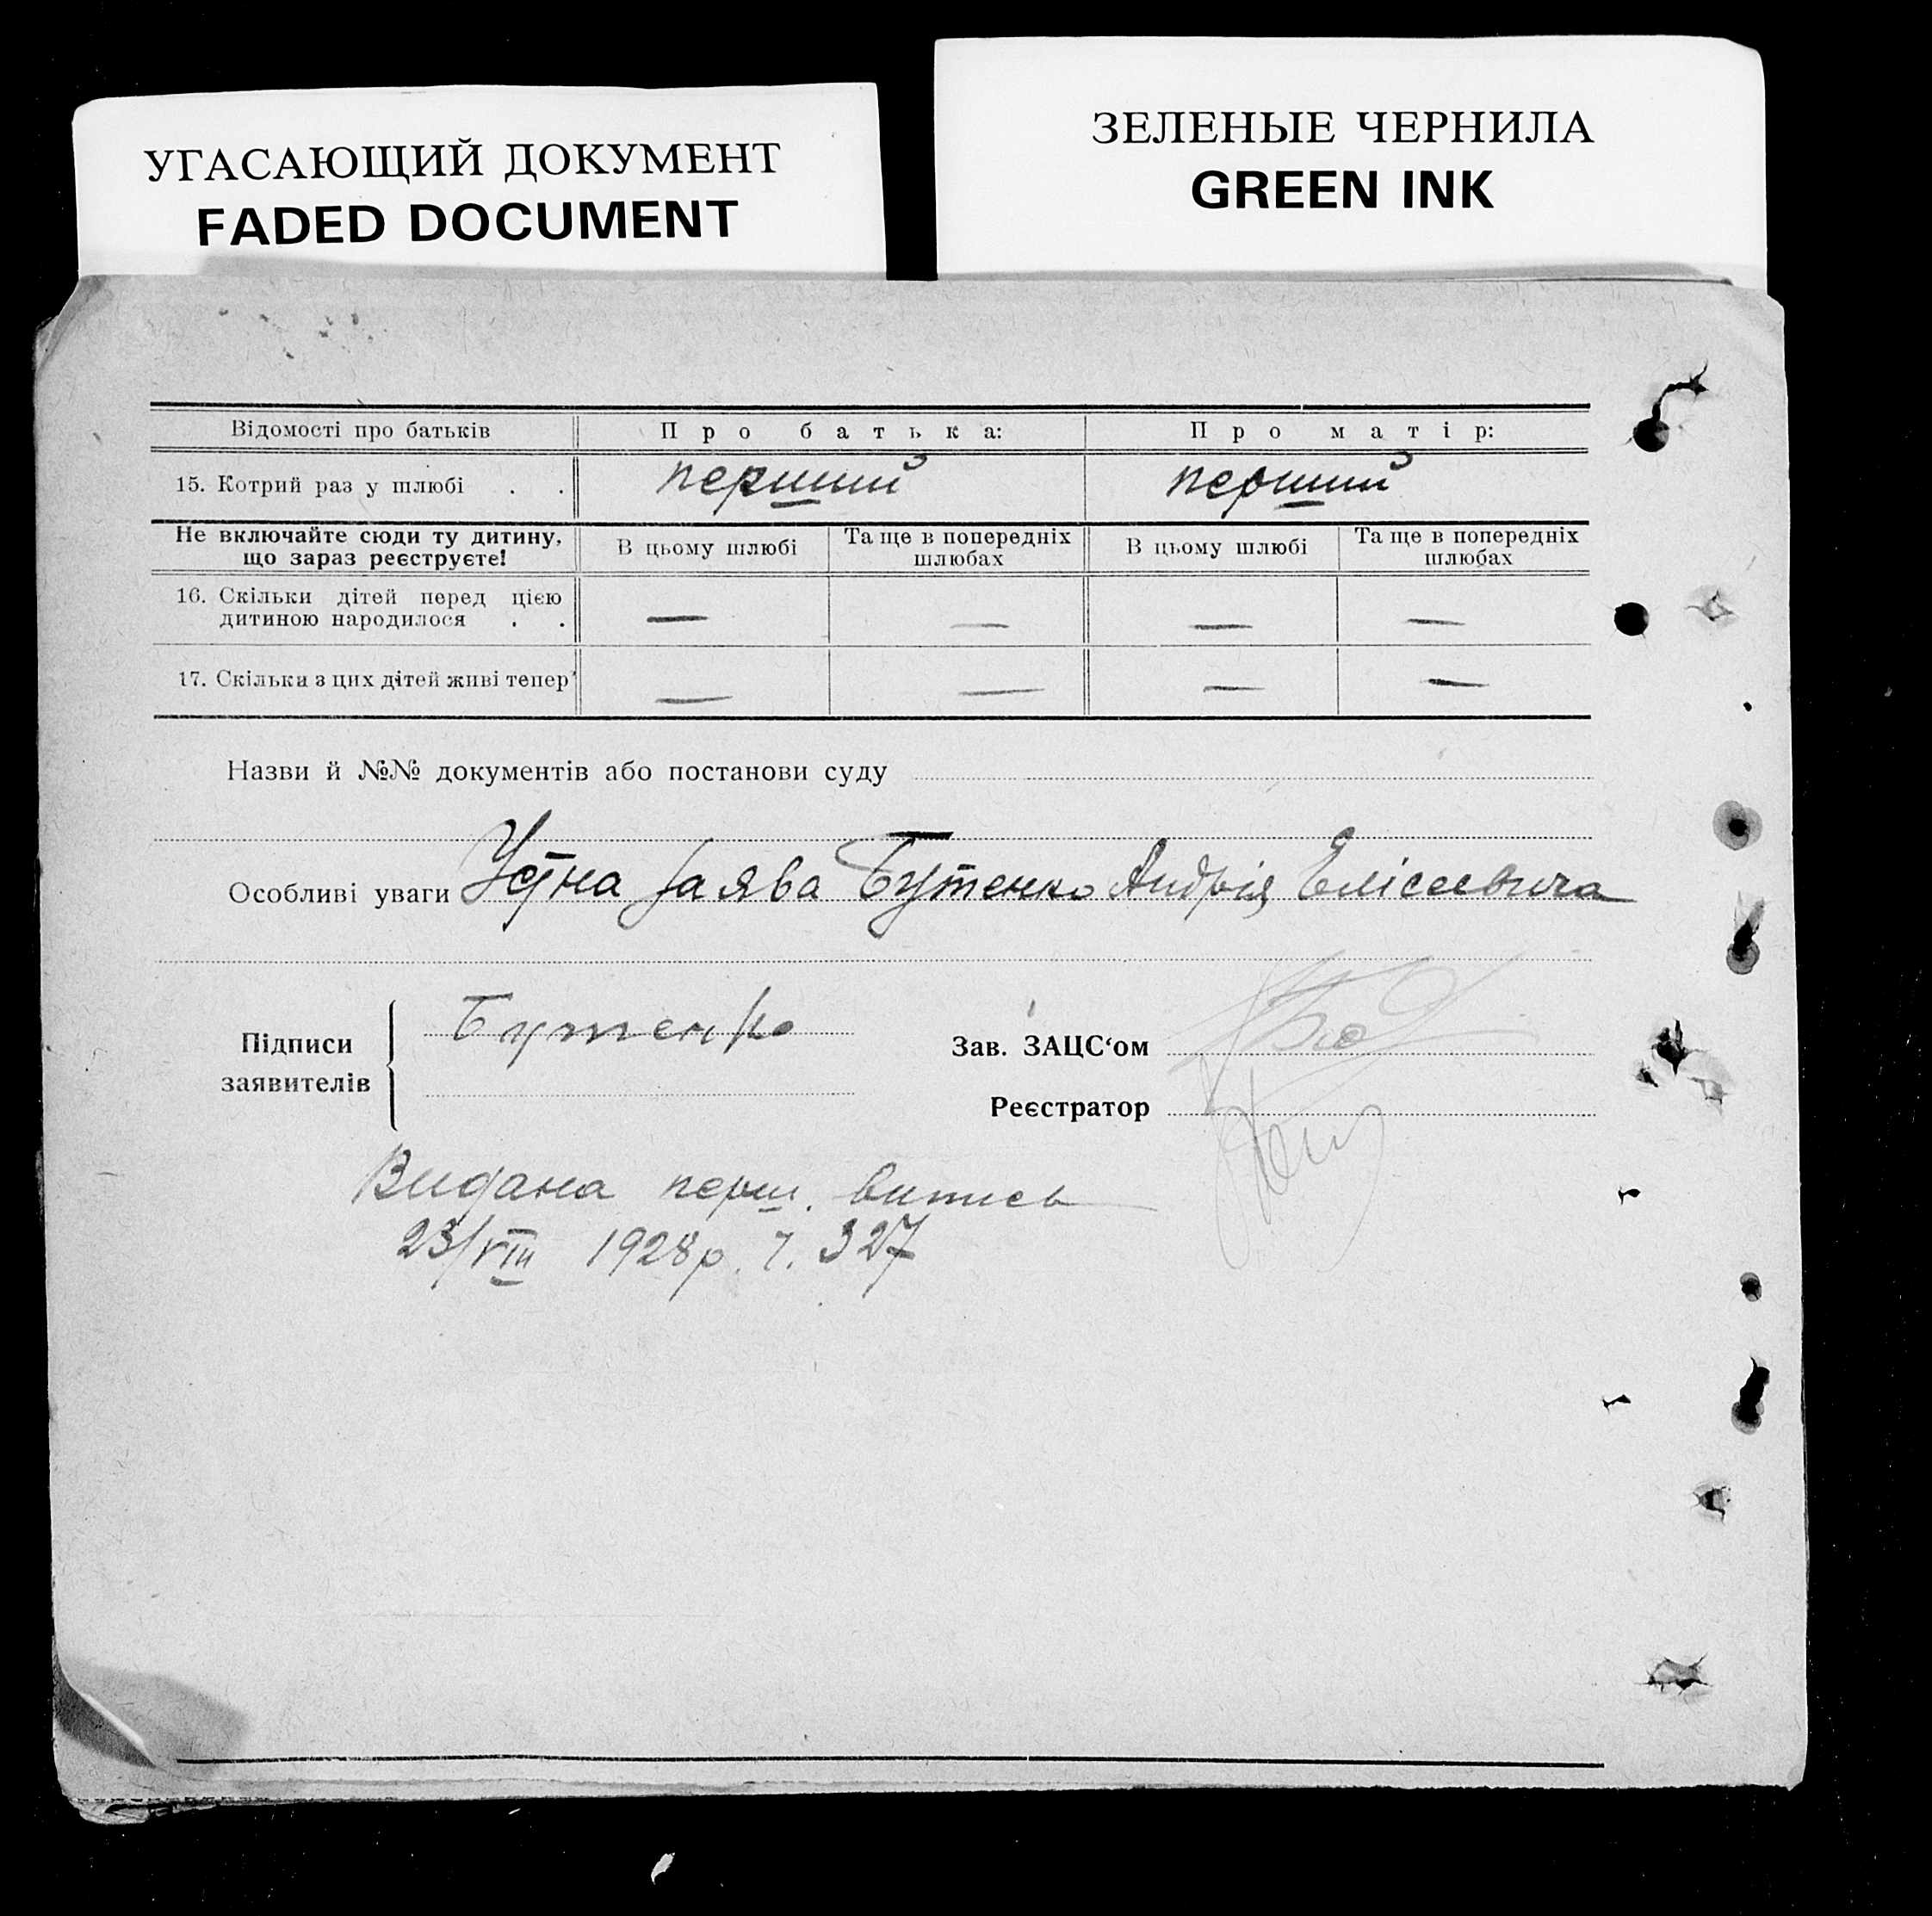 УГАСАЮЩИЙ ДОКУМЕНТ
FADED DOCUMENT
ЗЕЛЕНЫЕ ЧЕРНИЛА
GREEN INK
Відомості про батьків Про батька: Про матір:
15. Котрий раз у шлюбі . . перший перший
Не включайте сюди ту дитину, що зараз реєструєте! В цьому шлюбі Та ще в попередніх шлюбах В цьому шлюбі Та ще в попередніх шлюбах
16. Скільки дітей перед цією
дитиною народилося . . — — — —
17. Скільки з цих дітей живі тепер — — — —
Назви й №№ документів або постанови суду
Особливі уваги Устна заява Бутенко Андрія Елісеевича
Підписи заявителів Бутенко
Зав. ЗАЦС‘ом
Реєстратор
Видана перш. випись
23/VIII 1928 р. Ч. 327